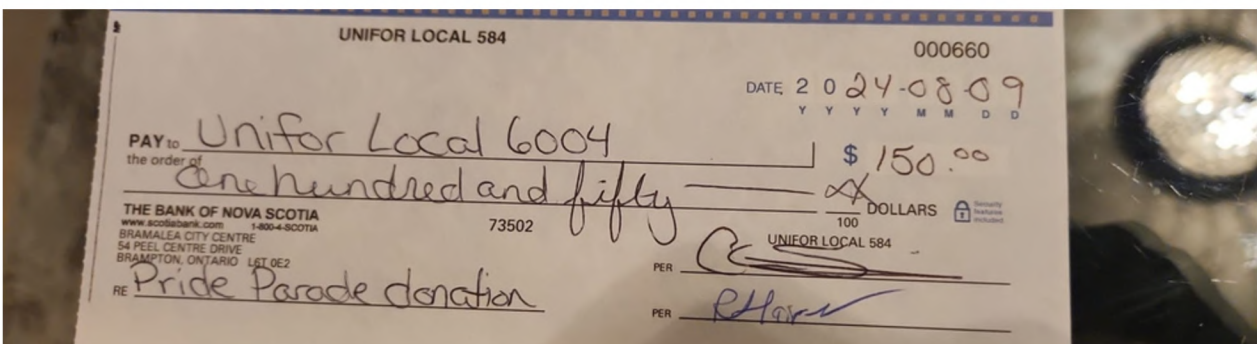 UNIFOR LOCAL 584
000660
DATE 2024-08-09
Y Y Y Y M M D D
PAY to Unifor Local 6004
the order of
$ 150.00
One hundred and fifty
100 DOLLARS
Security features included
THE BANK OF NOVA SCOTIA
www.scotiabank.com 1-800-4-SCOTIA
BRAMALEA CITY CENTRE
54 PEEL CENTRE DRIVE
BRAMPTON, ONTARIO L6T 0E2
73502
UNIFOR LOCAL 584
PER
RE Pride Parade donation
PER